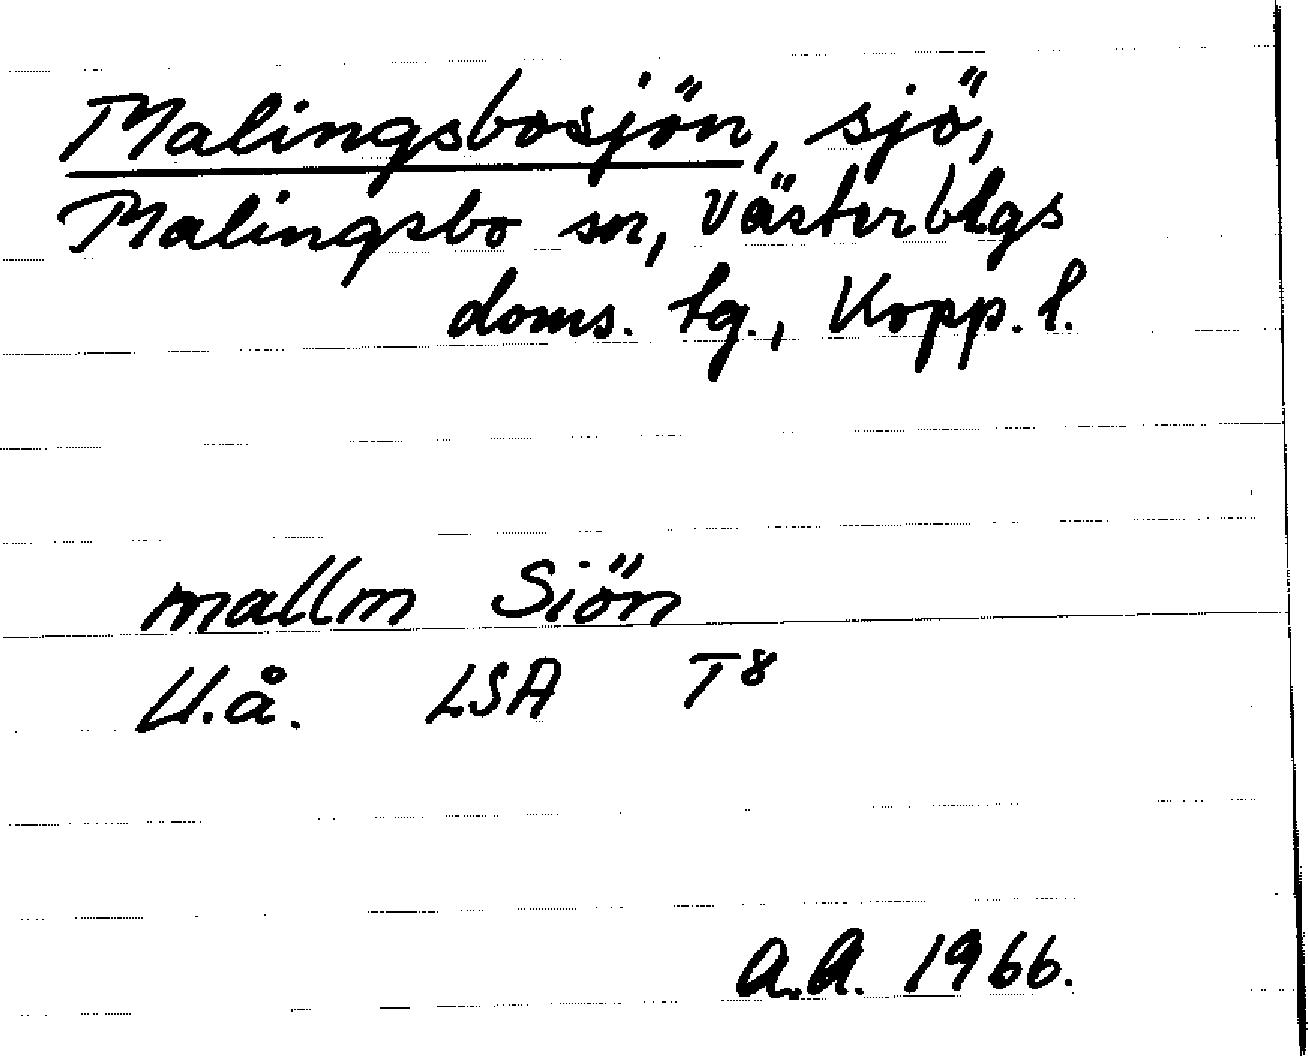 Malingsbosjön, sjö,
Malingsbo sn, Västerblgs
doms. tg., Kopp. l.
mallm Siön
U.å. LSA T8
A.A. 1966.